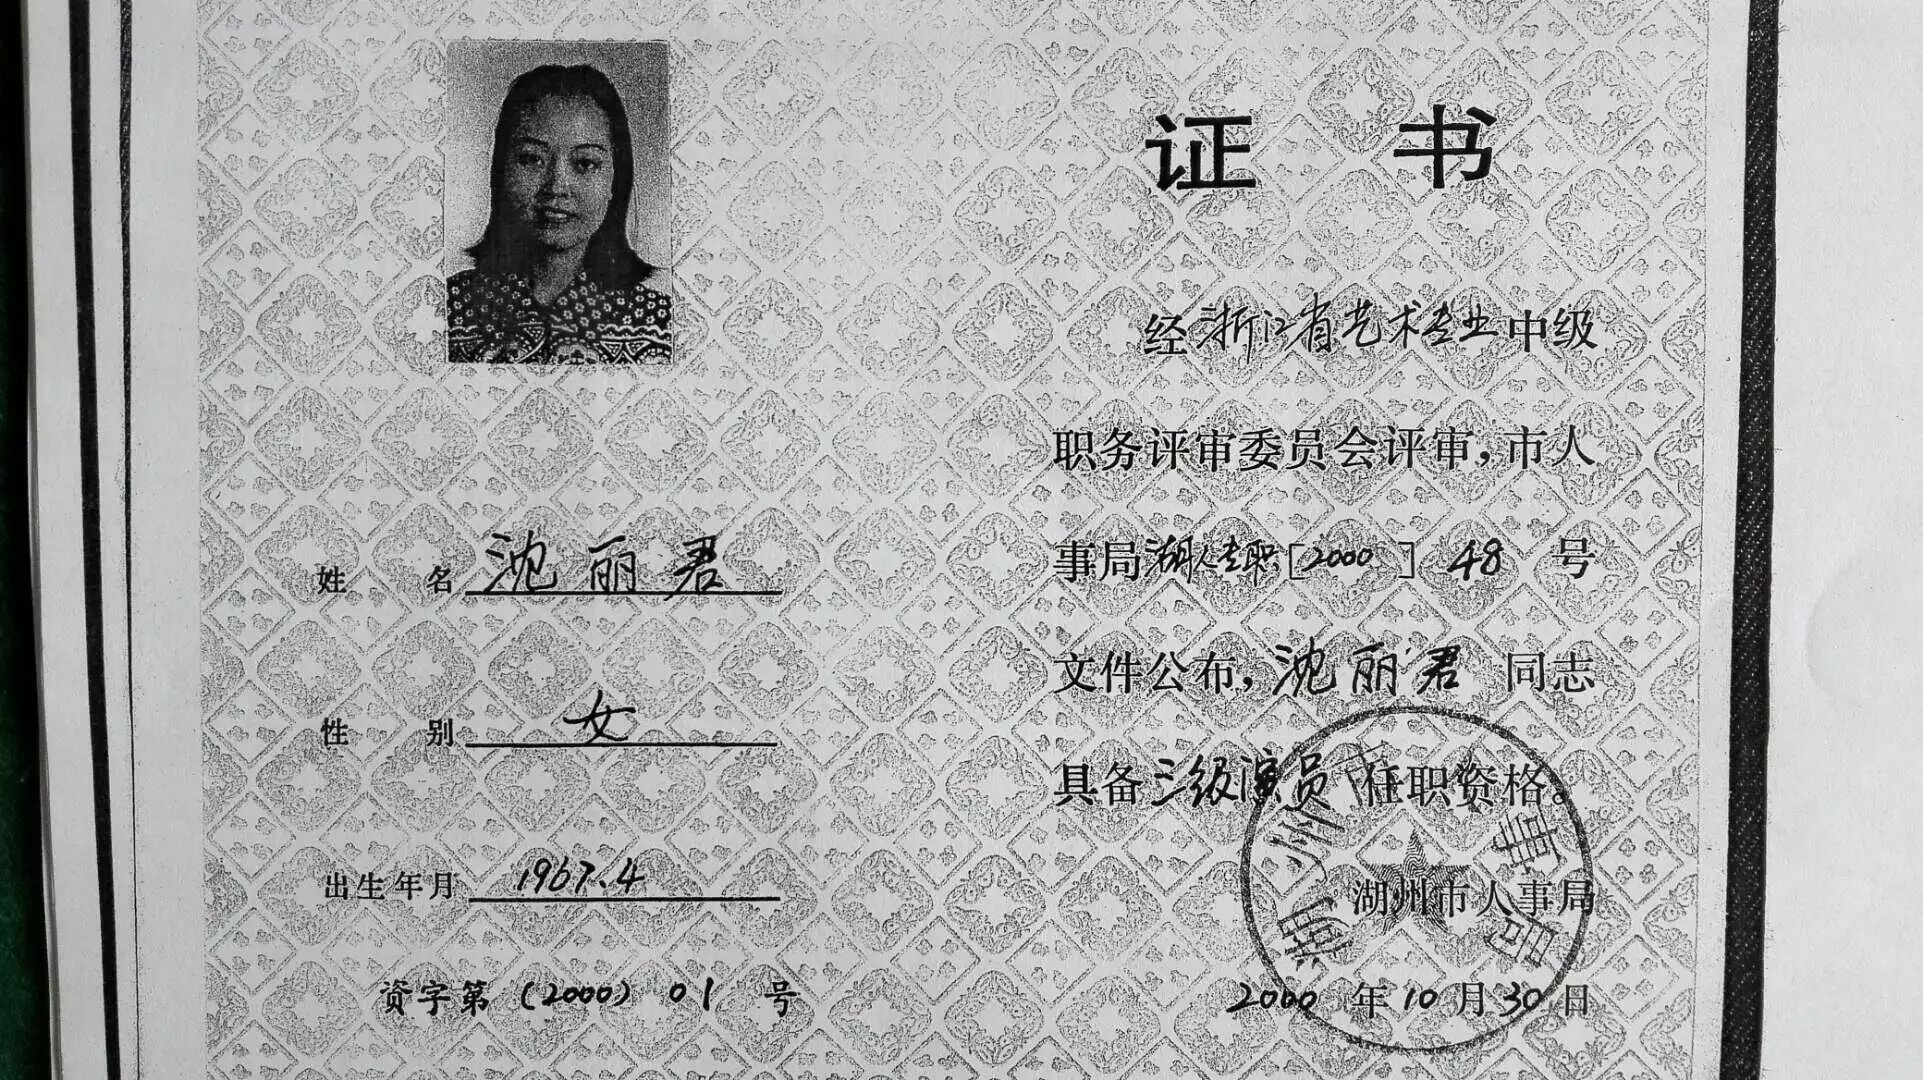 姓 名 沈丽君
性 别 女
出生年月 1967.4
资字第 (2000) 01 号
证 书
经浙江省艺术专业中级
职务评审委员会评审,市人
事局湖人专职[2000] 48 号
文件公布,沈丽君 同志
具备三级演员 任职资格。
湖州市人事局
湖州市人事局
2000 年 10 月 30 日